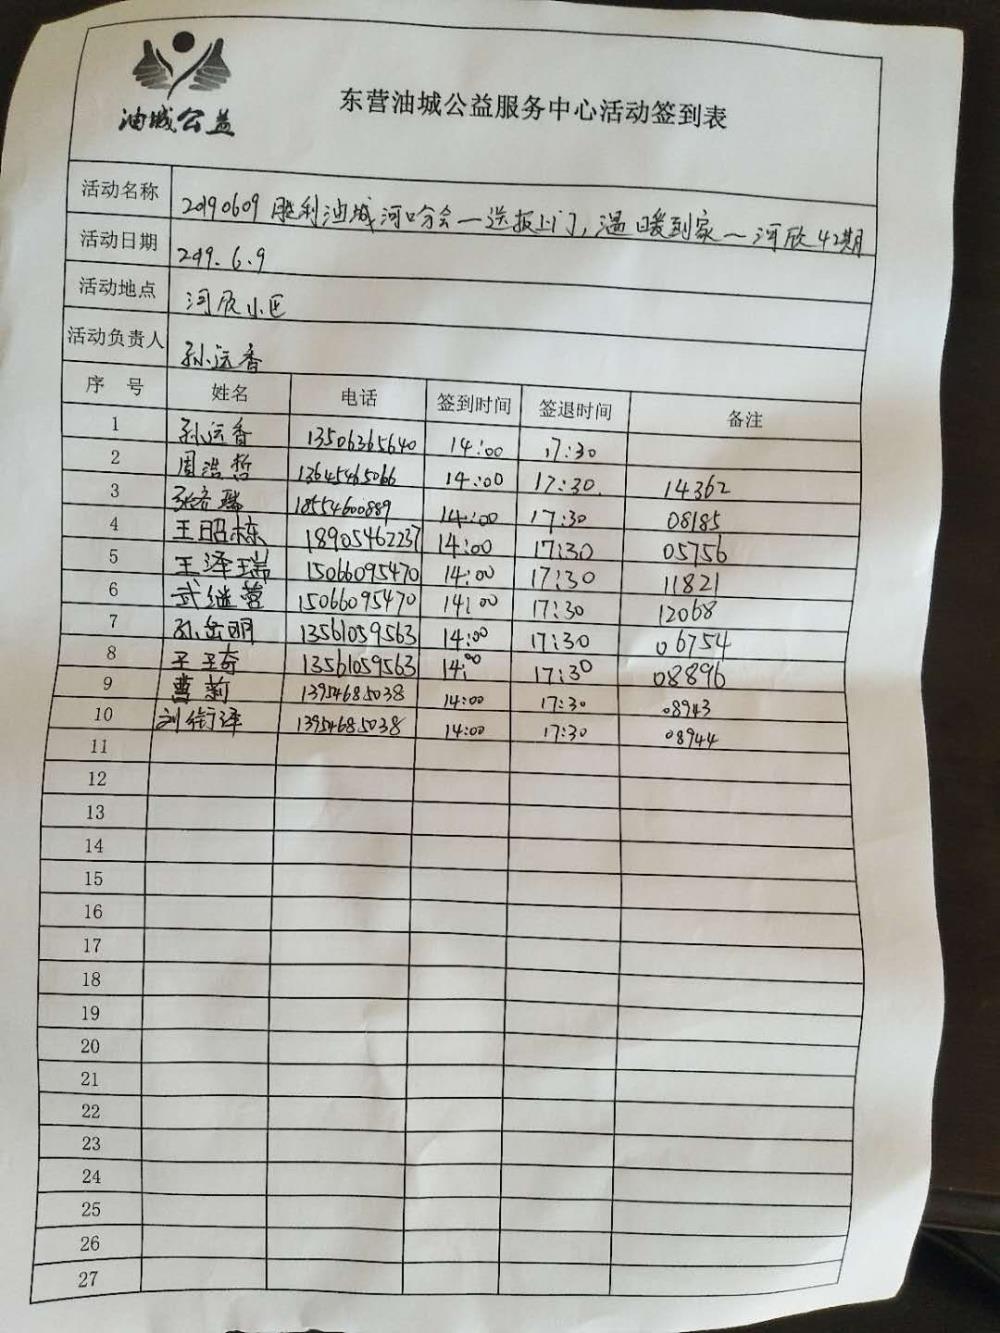 油城公益
东营油城公益服务中心活动签到表
活动名称 20190609 胜利油城河口分会—送报上门,温暖到家～河欣42期
活动日期 2019.6.9
活动地点 河欣小区
活动负责人 孙运香
序 号 姓名 电话 签到时间 签退时间 备注
1 孙运香 13506365640 14:00 17:30
2 周浩哲 13645465066 14:00 17:30 14362
3 18554600889 14:00 17:30 08185
4 王昭栋 18905462237 14:00 17:30 05756
5 王泽瑞 15066095470 14:00 17:30 11821
6 武继营 15066095470 14:00 17:30 12068
7 孙岳明 13561059563 14:00 17:30 06754
8 13561059563 14:00 17:30 08896
9 曹莉 13954685038 14:00 17:30 08943
10 刘衍泽 13954685038 14:00 17:30 08944
11
12
13
14
15
16
17
18
19
20
21
22
23
24
25
26
27